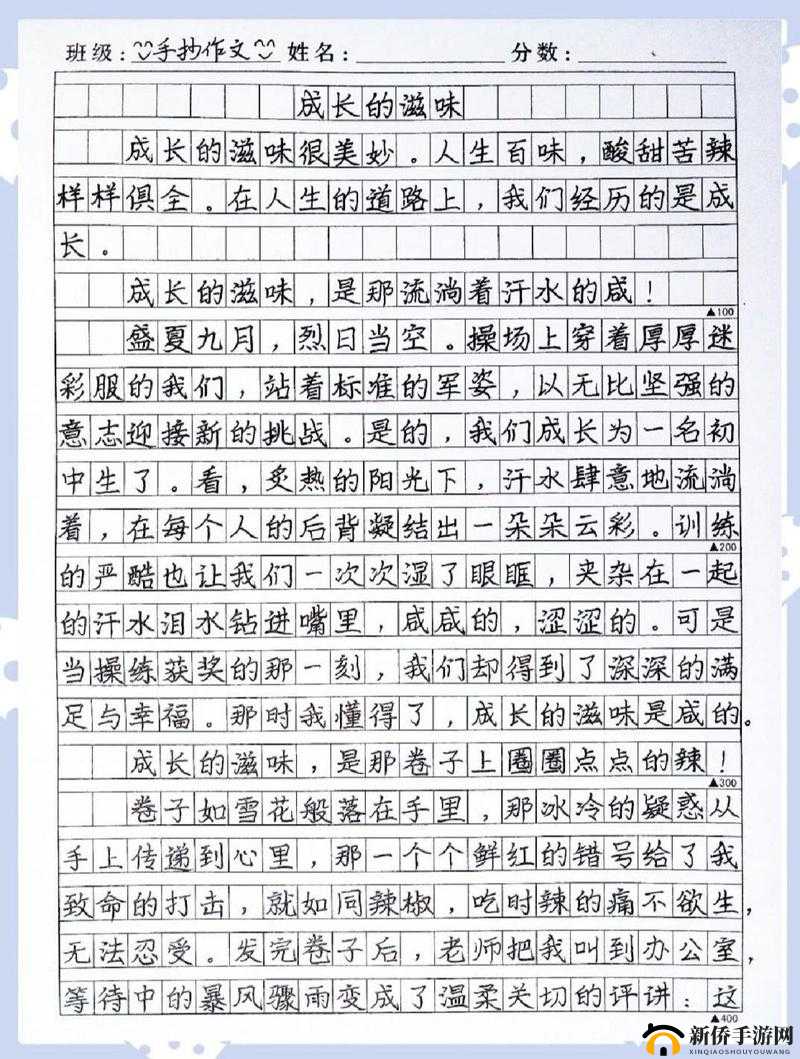 班级:手抄作文 姓名: 分数:
成长的滋味
成长的滋味很美妙。人生百味,酸甜苦辣
样样俱全。在人生的道路上,我们经历的是成
长。
成长的滋味,是那流淌着汗水的咸!
▲100
盛夏九月,烈日当空。操场上穿着厚厚迷
彩服的我们,站着标准的军姿,以无比坚强的
意志迎接新的挑战。是的,我们成长为一名初
中生了。看,炙热的阳光下,汗水肆意地流淌
着,在每个人的后背凝结出一朵朵云彩。训练
▲200
的严酷也让我们一次次湿了眼眶,夹杂在一起
的汗水泪水钻进嘴里,咸咸的,涩涩的。可是
当操练获奖的那一刻,我们却得到了深深的满
足与幸福。那时我懂得了,成长的滋味是咸的。
成长的滋味,是那卷子上圈圈点点的辣!
▲300
卷子如雪花般落在手里,那冰冷的疑惑从
手上传递到心里,那一个个鲜红的错号给了我
致命的打击,就如同辣椒,吃时辣的痛不欲生,
无法忍受。发完卷子后,老师把我叫到办公室,
等待中的暴风骤雨变成了温柔关切的评讲:这
▲400
新侨手游网
XINQIAOSHOUYOUWANG